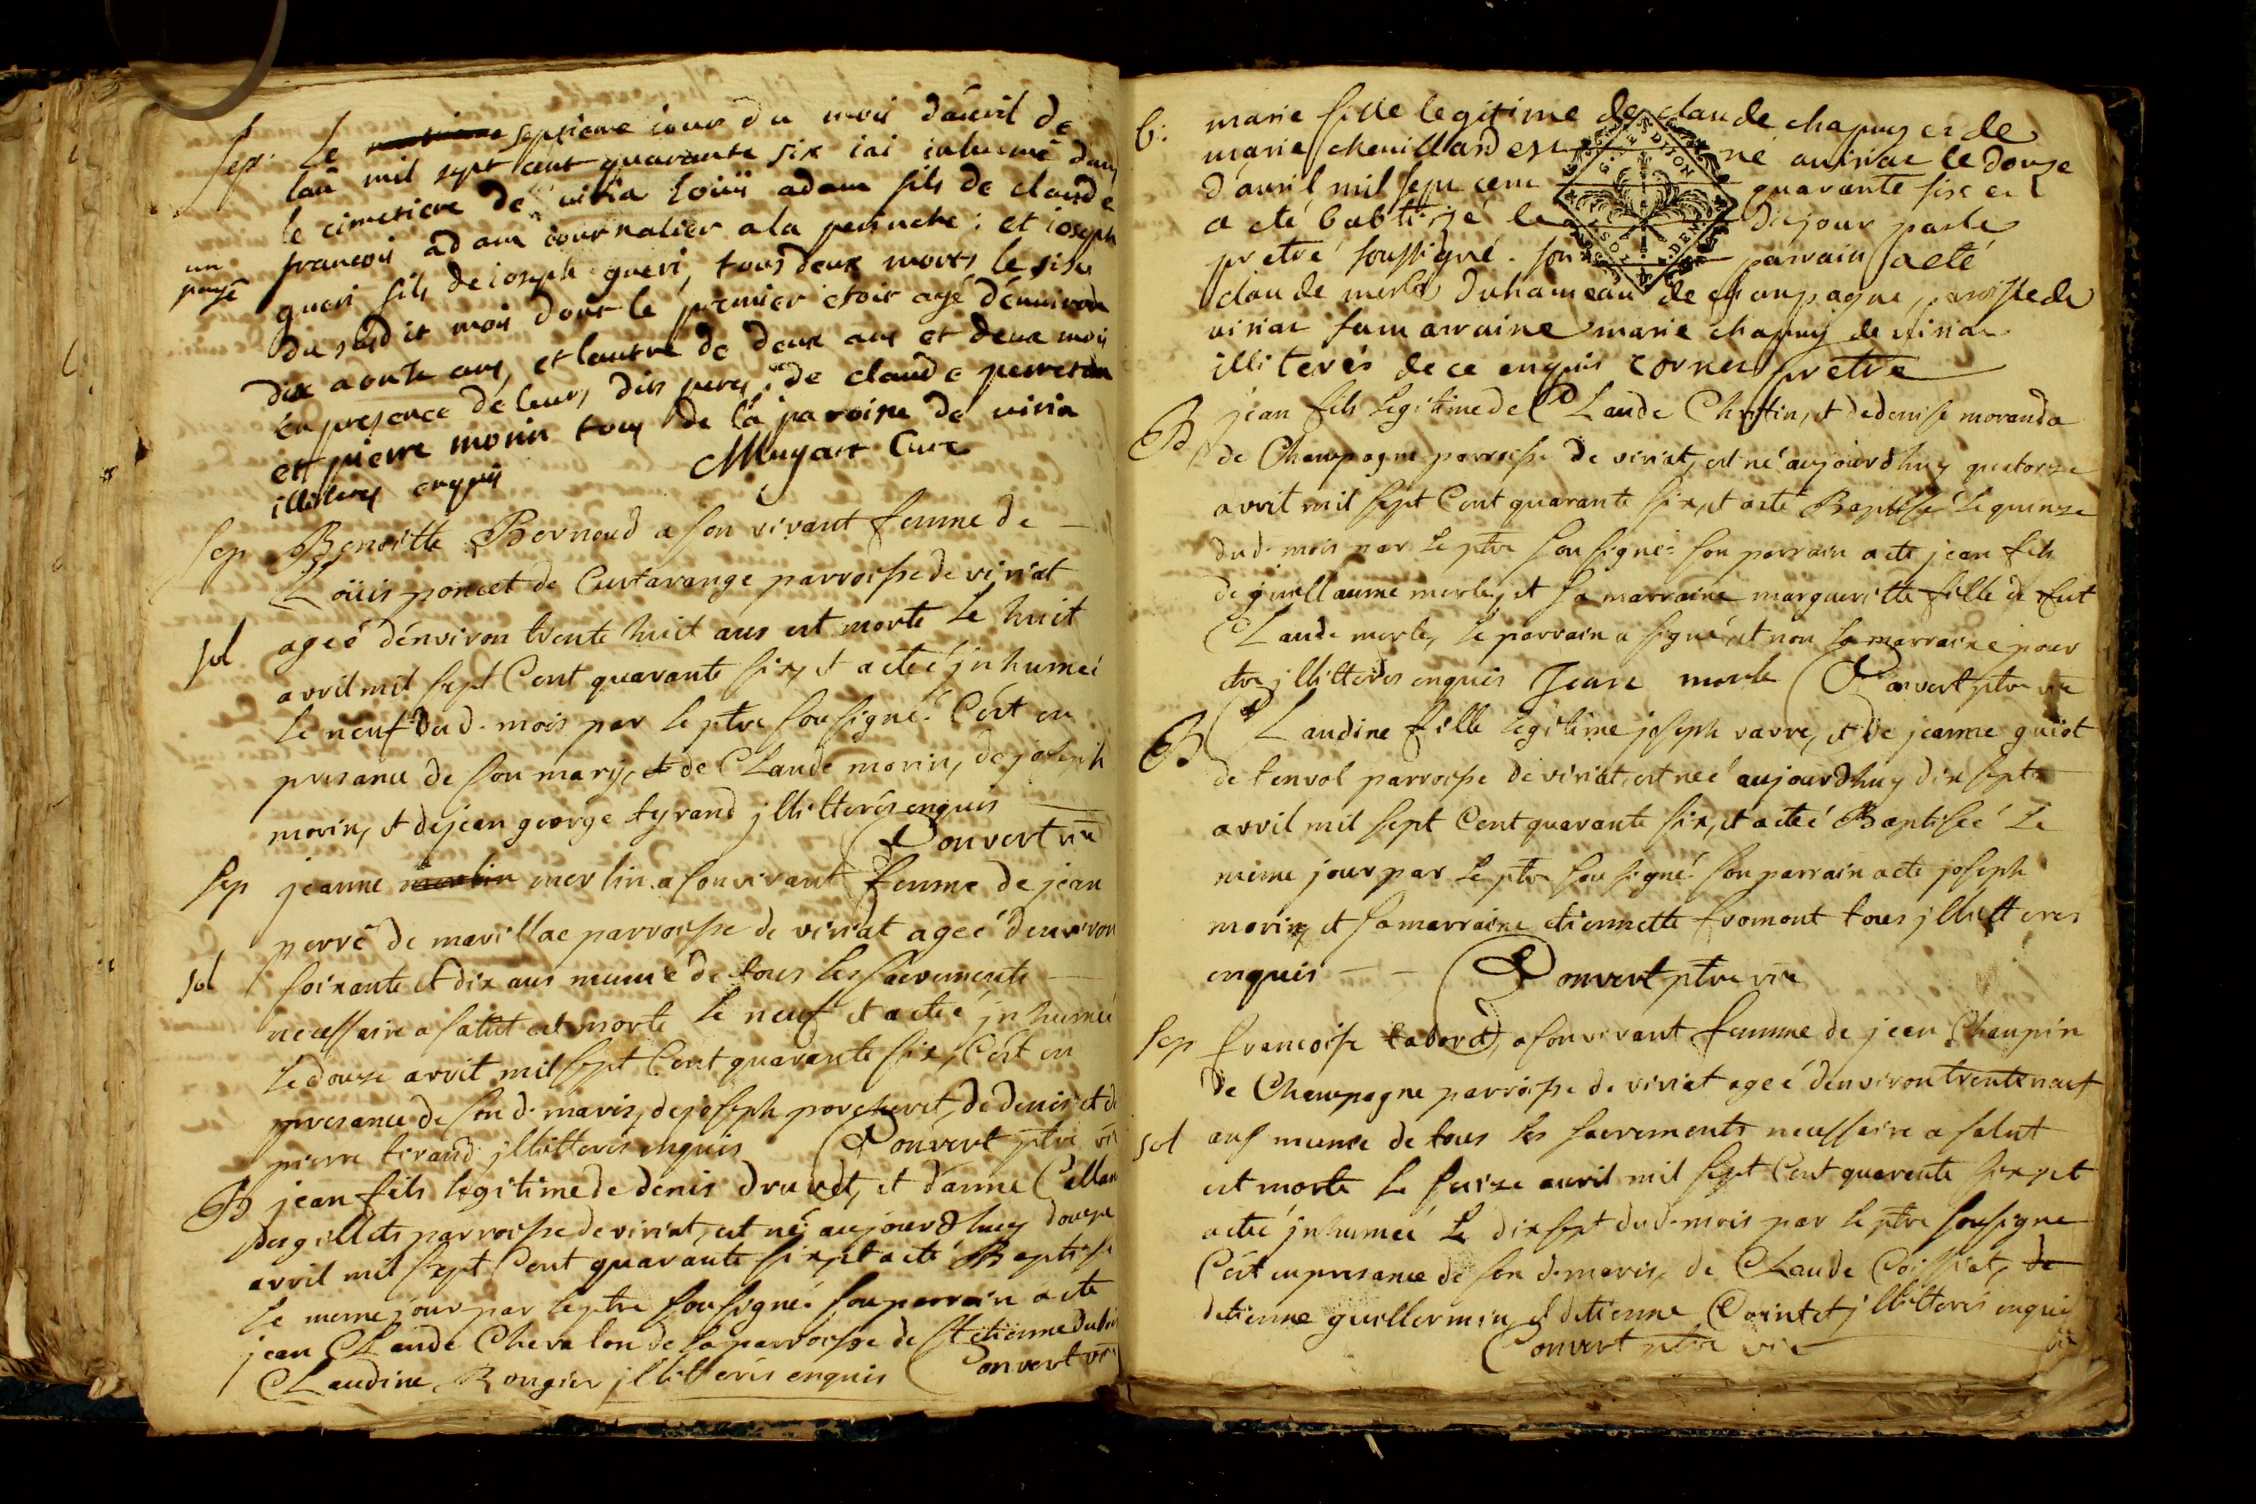 Sep. Le septieme iour du mois dáuril de
lan mil sept cent quarante six iai inhumé dans
le cimetiere de viria loüis adam fils de claude
francois adam iournalier a la peruche; et ioseph
un
payé
gueri fils de ioseph gueri, tous deux morts le six
du susdit mois dont le premier etoit agé dénuiron
dix a onze ans, et lautre de deux ans et deux mois
én presence de leurs dits peres, de claude perret
et pierre morin tous de la paroisse de viria
illiteres enquis Muyart Curé
Sep Benoitte Bernoud a son vivant femme de
Loüis poncet de Curtarange parroisse de viriat
sol ageé dénviron trente huit ans est morte le huit
avril mil sept Cent quarante six, et a eteé jnhumeé
le neuf dud. mois par le ptre sousigné. C'ést en
presance de son mary, et de Claude morin, de joseph
morin, et de jean george tyrand jllitterés enquis
Convert vre
Sep jeanne merlin merlin a son vivant femme de jean
perré de marillac parroisse de viriat ageé denviron
sol soixante et dix ans munié de tous les sacrements
necessaire a salut est morte le neuf et a eteé jnhumeé
le douze avril mil sept Cent quarante six, C'ést en
presance de son d. maris, de joseph porcheret, de denis et de
pierre tirand jllitterés enquis Convert ptre vre
B jean fils legitime de denis druvet, et d'anne
des gillets parroisse de viriat, est né aujourdhuy douze
avril mil sept Cent quarante six, et a eté Baptisé
le meme jour par le ptre sousigné. son parrain a eté
jean Claude Chevalon de la parroisse de St etienne du bois
Claudine Rongier jllitterés enquis Convert vre
b: marie fille legitime de claude chapuy et de
marie cheuillard est né a uiriac le douze
d'auril mil sept cent quarante six et
a eté babtisé le dit jour par le
pretre soussigné. son parrain a eté
G. DE DIJON
claude merle du hameau de champagne, paroisse de
uiriac sa marraine marie chapuy de uiriac
illiterés de ce enquis cornet pretre
B jean fils legitime de Claude Chatin, et de denise moranda
de Champagne parroisse de viriat, est né aujourdhuy quatorze
avril mil sept Cent quarante six, et a eté Baptisé le quinze
dud. mois par le ptre sousigné. son parrain a eté jean fils
de guillaume merle, et sa marraine margueritte fille de fut
Claude merle, le parrain a signé, et non la marraine pour
etre jllitterés enquis Jean merle Convert ptre vre
B Claudine fille legitime joseph varre, et de jeanne guiot
de tenvol parroisse de viriat, est neé aujourdhuy dix sept
avril mil sept Cent quarante six, et a eteé Baptiseé le
meme jour par le ptre sousigné. son parrain a eté joseph
morin, et sa marraine etiennette fromont tous jllitteres
enquis Convert ptre vre
Sep francoise tabord, a son vivant femme de jean Chanpin
de Champagne parroisse de viriat ageé denviron trente neuf
sol ans muniee de tous les sacrements necessaire a salut
est morte le seize auril mil sept Cent quarente six, et
a eteé jnhumeé le dix sept dud. mois par le ptre sousigne
C'ést en presance de son d. maris, de Claude Coissiat, de
detienne guillermin, et detienne Cointet jllitterés enquis
Convert ptre vre